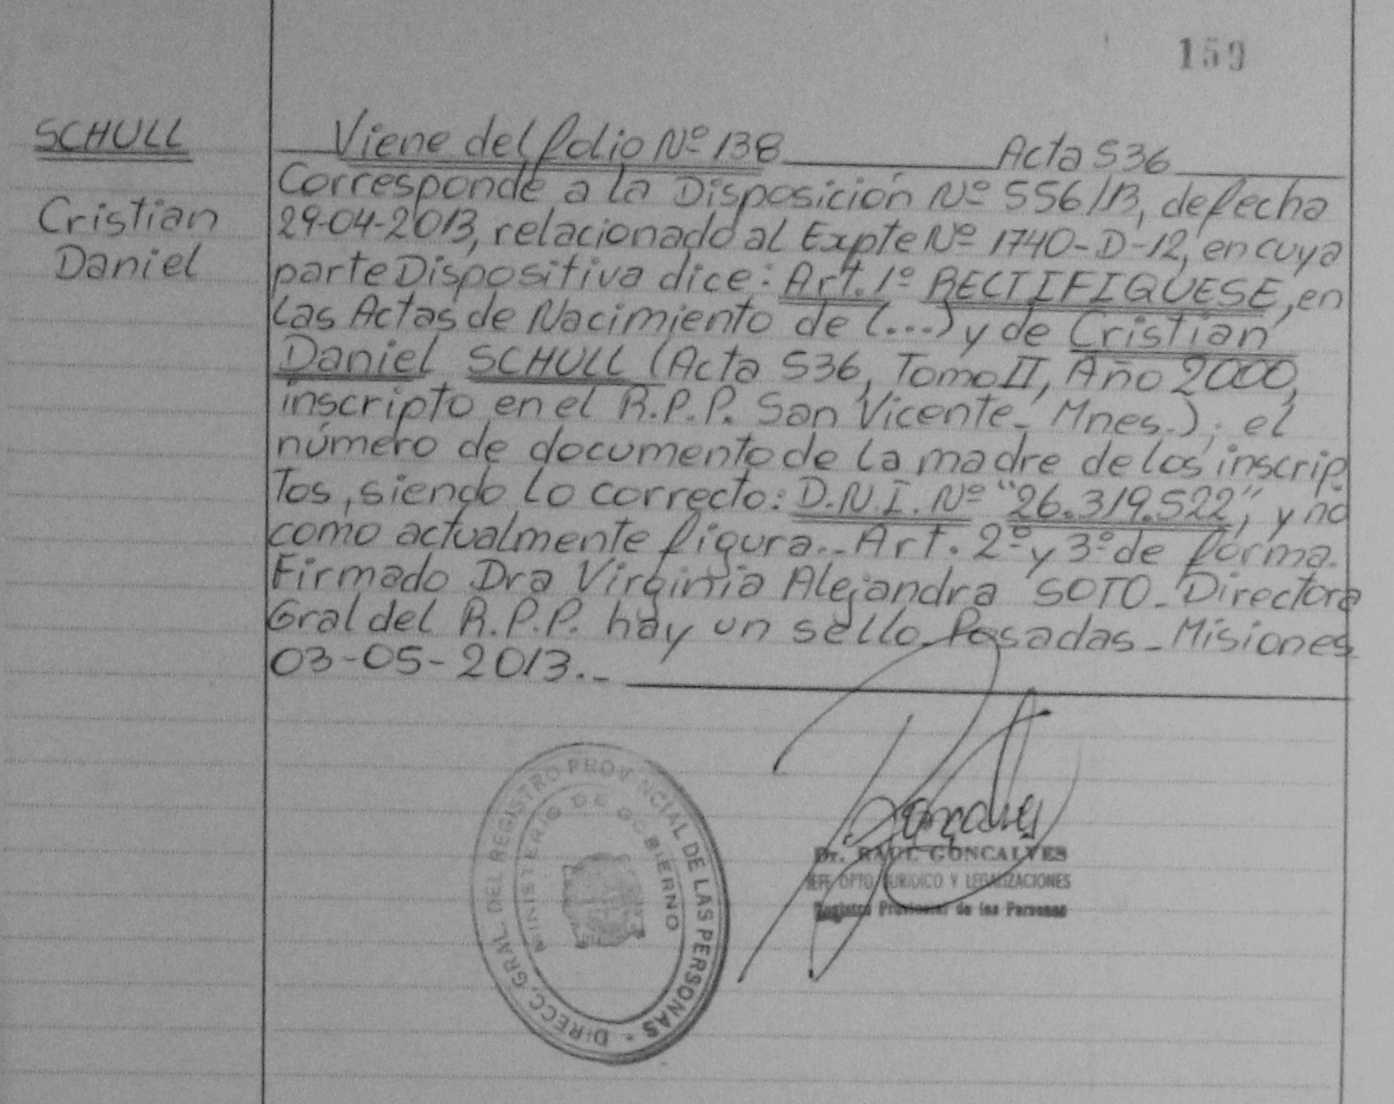 159
SCHULL
Cristian
Daniel
Viene del folio Nº 138 Acta 536
Corresponde a la Disposición Nº 556/13, de fecha
29-04-2013, relacionado al Expte Nº 1740-D-12, en cuya
parte Dispositiva dice: Art. 1º RECTIFIQUESE, en
las Actas de Nacimiento de (...) y de Cristian
Daniel SCHULL (Acta 536, Tomo II, Año 2000,
inscripto en el R.P.P. San Vicente - Mnes.); el
número de documento de la madre de los inscrip
tos, siendo lo correcto: D.N.I. Nº "26.319.522", y no
como actualmente figura.- Art. 2º y 3º de forma.
Firmado Dra Virginia Alejandra SOTO - Directora
Gral del R.P.P. hay un sello Posadas - Misiones
03-05-2013.-
DIRECC. GRAL. DEL REGISTRO PROVINCIAL DE LAS PERSONAS -
MINISTERIO DE GOBIERNO
Goncalves
Dr. RAUL GONCALVES
JEFE DPTO JURIDICO Y LEGALIZACIONES
Registro Provincial de las Personas